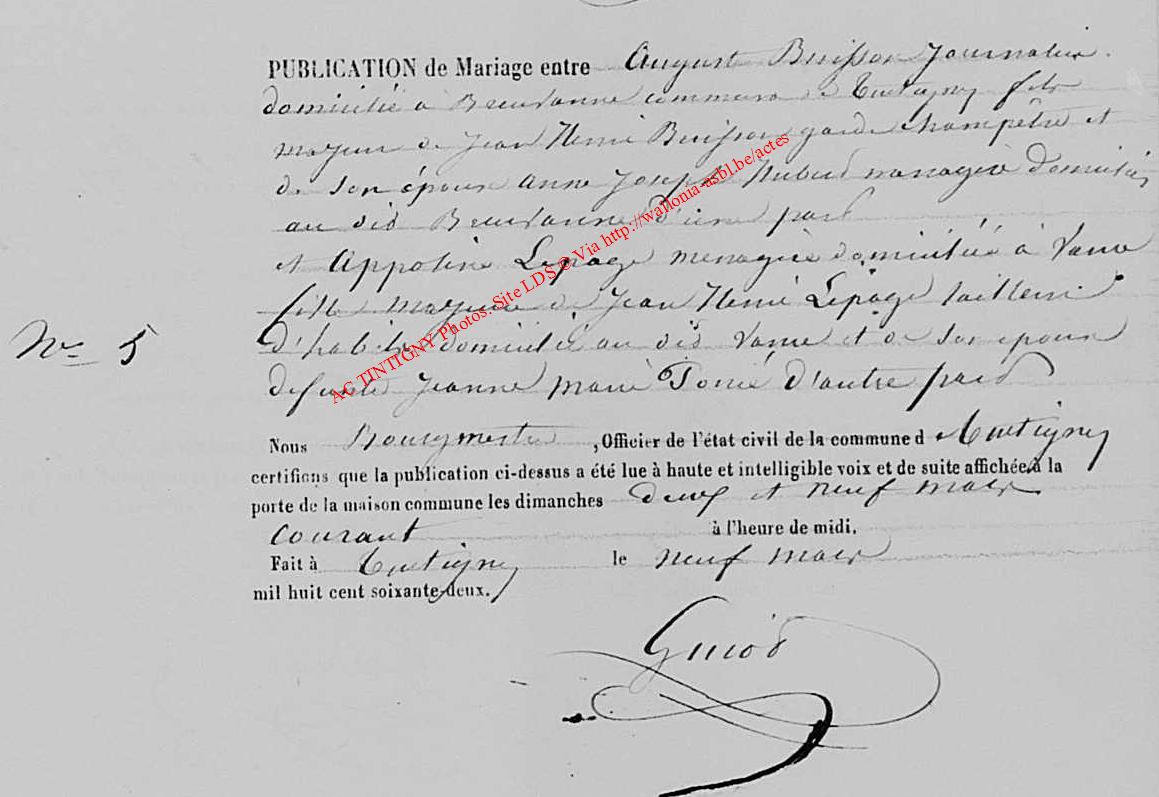 PUBLICATION de Mariage entre August Buisson Journalier
domicilié a Breuvanne commune de Tintigny fils
majeur de Jean Henri Buisson garde champêtre et
de son épouse Anne Joseph Hubert menagère domiciliés
au dit Breuvanne d'une part
et Appoline Lepage menagère domiciliée à
fille majeure de Jean Henri Lepage tailleur
N° 5
d'habits domicilié au dit et de son epouse
defunte Jeanne Marie d'autre part
Nous Bourgmestre , Officier de l'état civil de la commune d e Tintigny
certifions que la publication ci-dessus a été lue à haute et intelligible voix et de suite affichée à la
porte de la maison commune les dimanches deux et neuf mars
courant à l'heure de midi.
Fait à Tintigny le neuf mars
mil huit cent soixante-deux.
AC TINTIGNY Photos. Site LDS © Via http://wallonia-asbl.be/actes